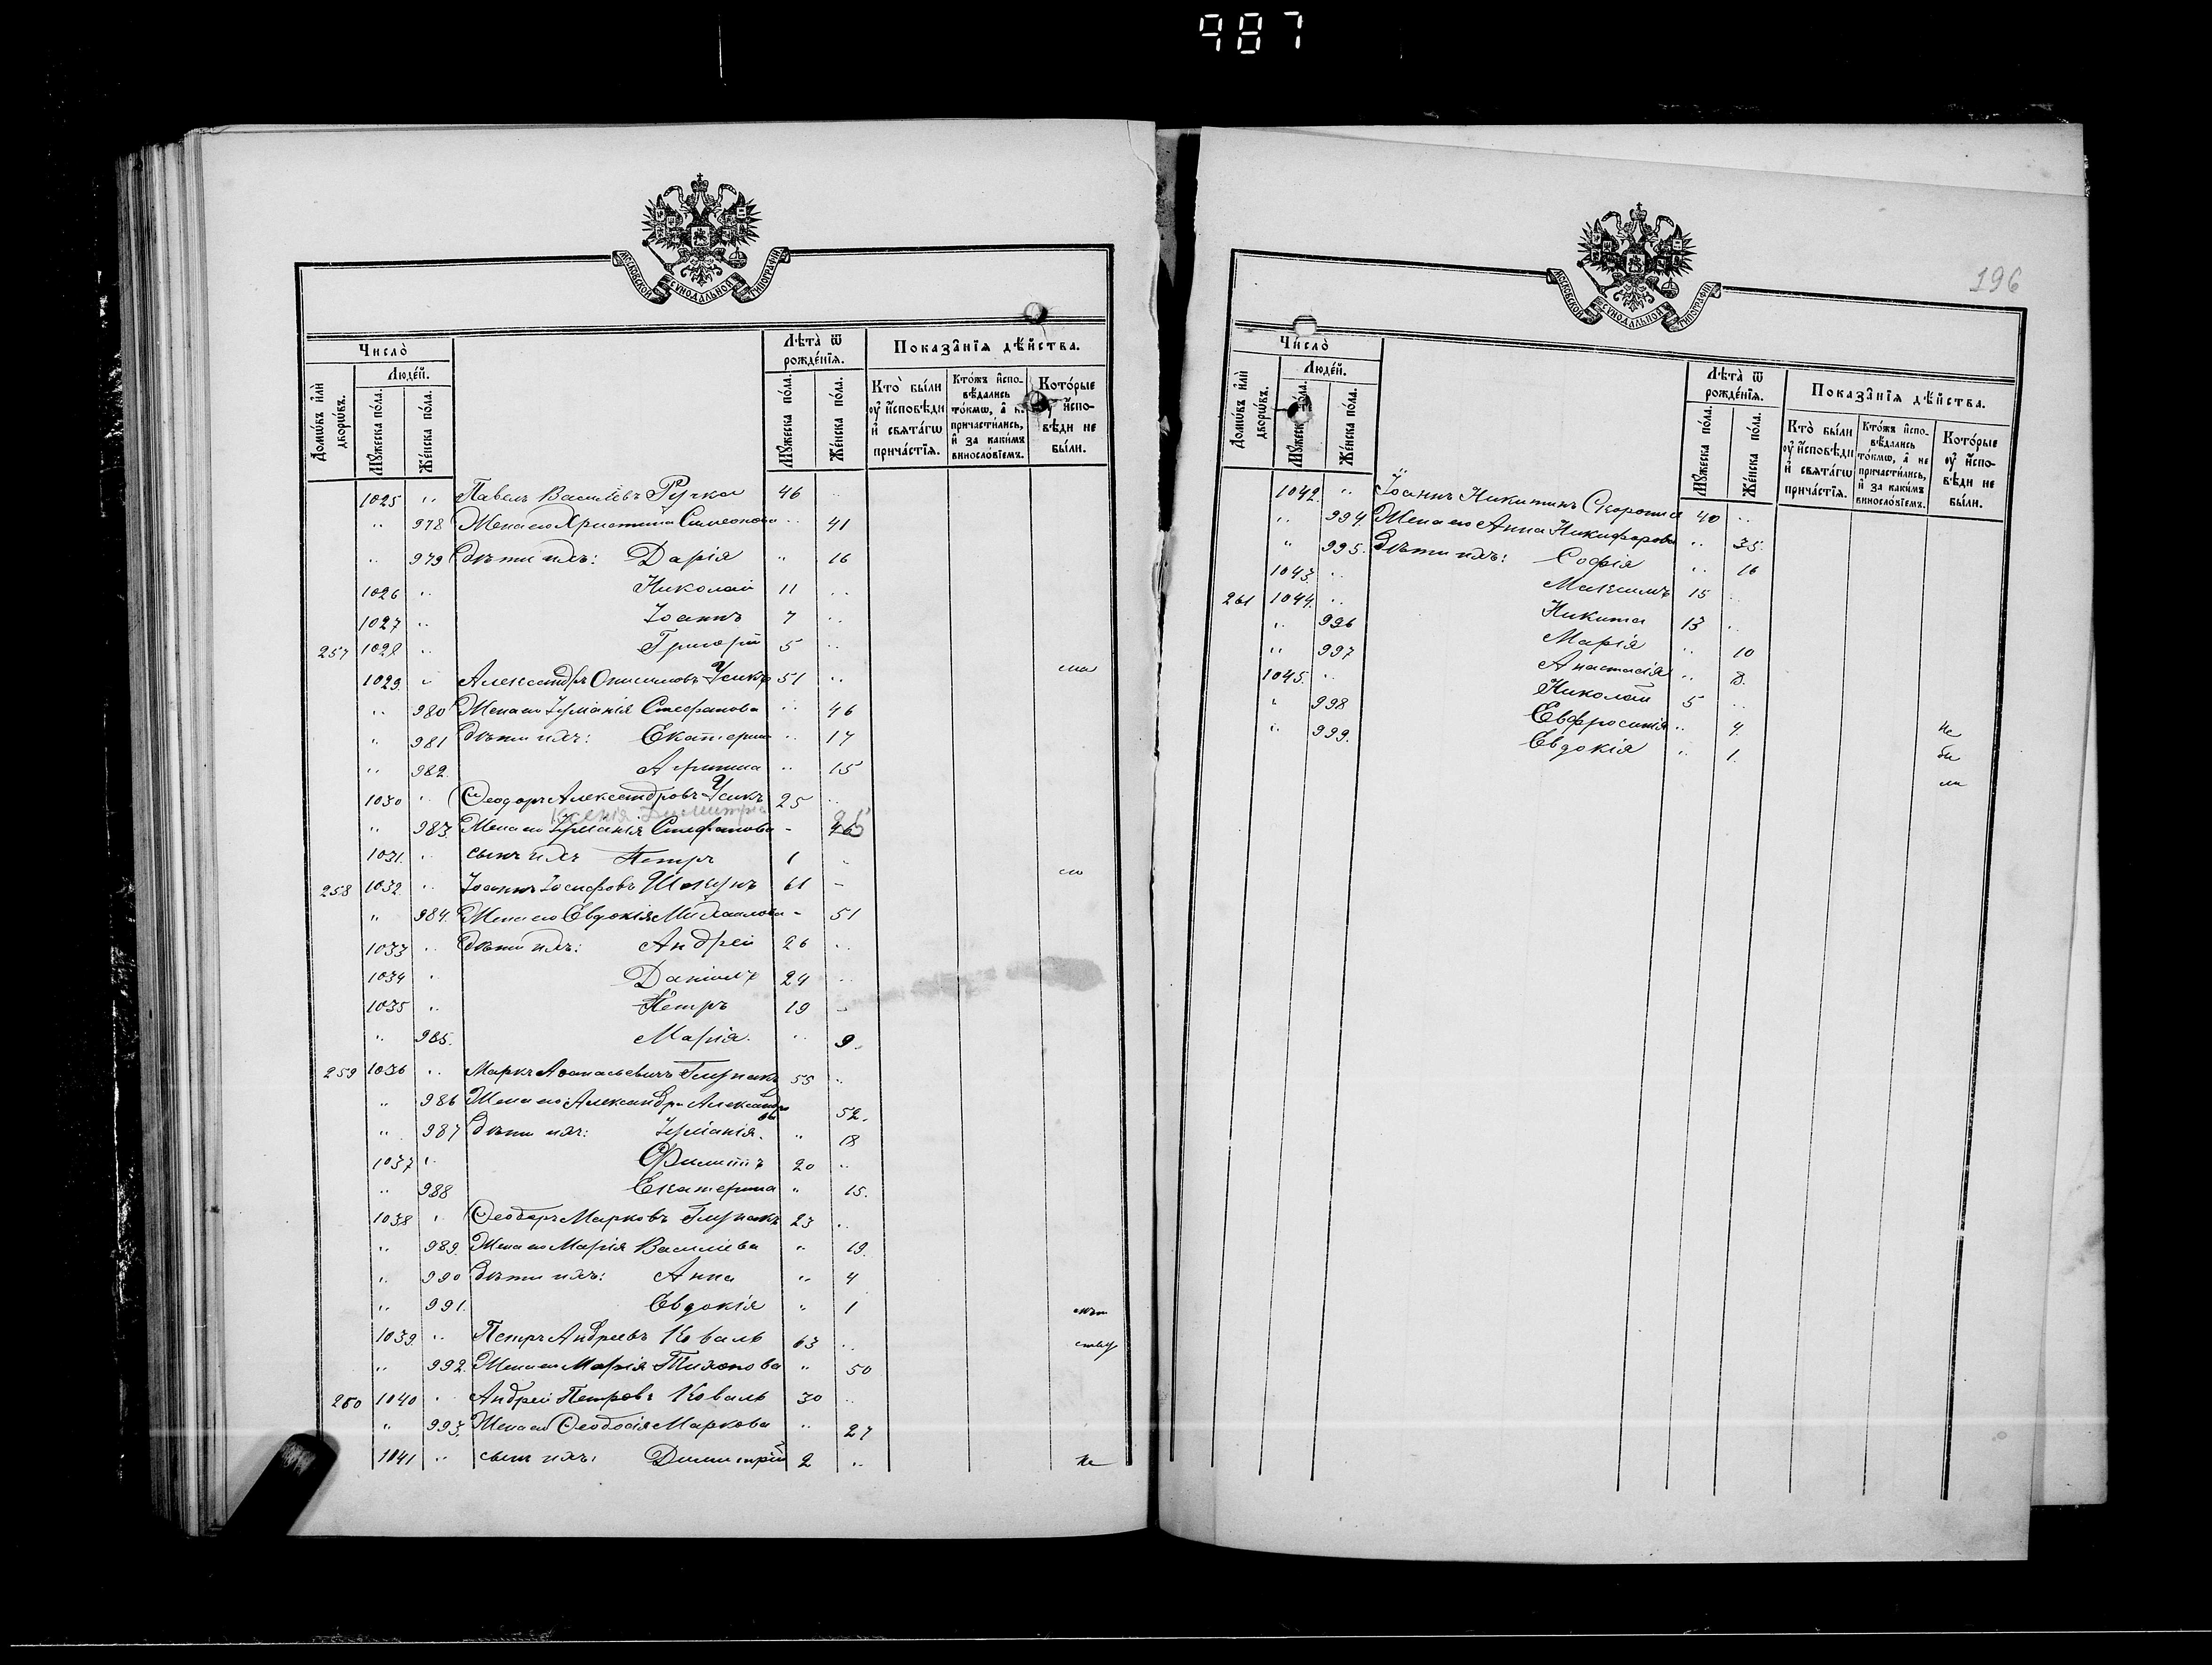 987
МОСКОВСКОЙ СѴНОДАЛЬНОЙ ТИПОГРАФІИ
Число̀
Людей.
Домѡвъ и҆лѝ дворѡвъ.
Мꙋжеска по́ла.
Же́нска по́ла.
Лѣта̀ ѿ рожде́нїѧ.
Мꙋжеска по́ла.
Же́нска по́ла.
Показа̑нїѧ дѣ́йства.
Кто̀ бы́ли оу҆ и҆сповѣди и҆ свѧта́гѡ прича́стїѧ.
Кто́жъ и҆спо-вѣдались то́кмѡ, а҆ не причасти́лись, и҆ за каки́мъ виносло́вїемъ.
Кото́рые оу҆ и҆спо-вѣди не бы́ли.
1025 " Павелъ Васильевъ Ручка 46 "
" 978 Жена его Христина Симеонова " 41
" 979 Дѣти ихъ: Дарія " 16
1026 " Николай 11 "
1027 " Іоаннъ 7 "
257 1028 " Григорій 5 "
1029. " Александръ Онисимовъ Усикъ 51 "
" 980 Жена его Іуліанія Стефанова " 46
" 981 Дѣти ихъ: Екатерина " 17
" 982. " 15
1030 " Ѳеодоръ Александровъ Усикъ 25 "
Ксенія Димитріева
" 983. Жена его Іуліанія Стефанова - 46
1031. " сынъ ихъ Петръ 1 "
258 1032 " Іоаннъ Іосифовъ 61 -
" 984. Жена его Евдокія Михаилова - 51
1033 " Дѣти ихъ: Андрей 26 "
1034 " Даніилъ 24 "
1035 " Петръ 19 "
" 985. Марія. " 9.
259 1036 " Маркъ Аѳанасьевичъ 55 "
" 986 Жена его Александра Александрова 52.
" 987 Дѣти ихъ: Іуліанія. " 18
1037 " Филиппъ 20 "
" 988 Екатерина " 15.
1038 " Ѳеодоръ Марковъ 23 "
" 989. Жена его Марія Васильева " 19.
" 990 Дѣти ихъ: Анна " 4
" 991. Евдокія " 1
1039. " Петръ Андреевъ Коваль 63 "
" 992. Жена его Марія Тихонова " 50
260 1040 " Андрей Петровъ Коваль 30 "
" 993. Жена его Ѳеодосія Маркова " 27
1041 " сынъ ихъ: Димитрій 2 " Не
196
МОСКОВСКОЙ СѴНОДАЛЬНОЙ ТИПОГРАФІИ
Число̀
Людей.
Домѡвъ и҆лѝ дворѡвъ.
Мꙋжеска по́ла.
Же́нска по́ла.
Лѣта̀ ѿ рожде́нїѧ.
Мꙋжеска по́ла.
Же́нска по́ла.
Показа̑нїѧ дѣ́йства.
Кто̀ бы́ли оу҆ и҆сповѣди и҆ свѧта́гѡ прича́стїѧ.
Кто́жъ и҆спо-вѣдались то́кмѡ, а҆ не причасти́лись, и҆ за каки́мъ виносло́вїемъ.
Кото́рые оу҆ и҆спо-вѣди не бы́ли.
1042. " Іоаннъ Никитинъ 40 "
" 994. Жена его Анна Никифорова " 35.
" 995. Дѣти ихъ: Софія " 16
1043. " Максимъ 15 "
261 1044. " Никита 13 "
" 996 Марія " 10
" 997 Анастасія " 8.
1045. " Николай 5 "
" 998 Евфросинія " 4. Не
" 999. Евдокія " 1. бы
ли